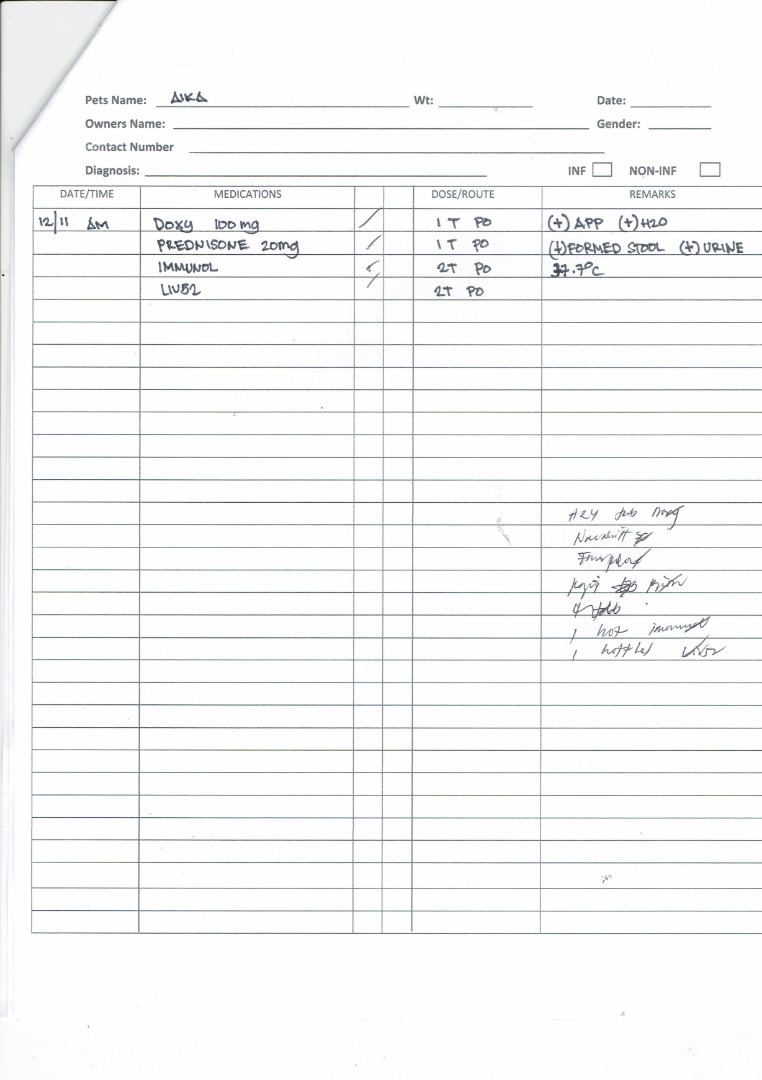 Pets Name: AIKA Wt: Date:
Owners Name: Gender:
Contact Number
Diagnosis: INF NON-INF
DATE/TIME MEDICATIONS DOSE/ROUTE REMARKS
12/11 AM Doxy 100mg / 1 T PO (+) APP (+) H2O
PREDNISONE 20mg / 1 T PO (+) FORMED STOOL (+) URINE
IMMUNOL / 2T PO 37.7°C
LIV52 / 2T PO
#24
4
1 bot
1 bottled Liv52